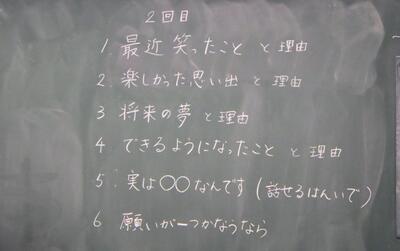 2回目
1. 最近笑ったこと と 理由
2. 楽しかった思い出 と 理由
3 将来の夢 と 理由
4 できるようになったこと と 理由
5. 実は○○なんです(話せるはんいで)
6 願いが一つかなうなら